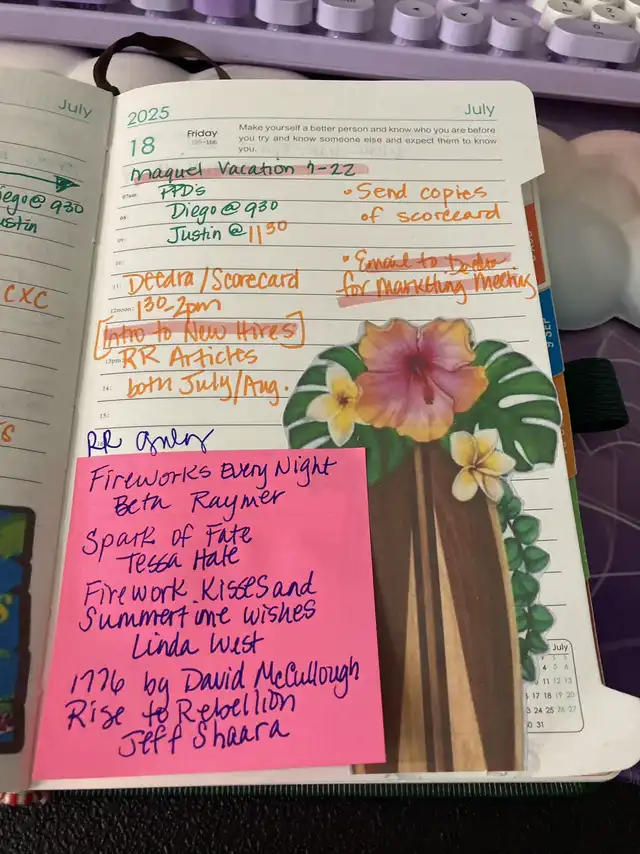 July
Diego @ 930
Justin
CXC
2025
July
18
Friday
Make yourself a better person and know who you are before
you try and know someone else and expect them to know
you.
Maquel Vacation 7-22
PPD's
Diego @ 930
Justin @ 1130
• Send copies
of scorecard
• Email to Deedra
for Marketing Meeting
Deedra / Scorecard
130-2pm
Intro to New Hires
RR Articles
both July/Aug.
RR
Fireworks Every Night
Beth Raymer
Spark of Fate
Tessa Hale
Firework Kisses and
Summertime Wishes
Linda West
1776 by David McCullough
Rise to Rebellion
Jeff Shaara
9 SEP
July
11 12 13
17 18 19 20
24 25 26 27
31